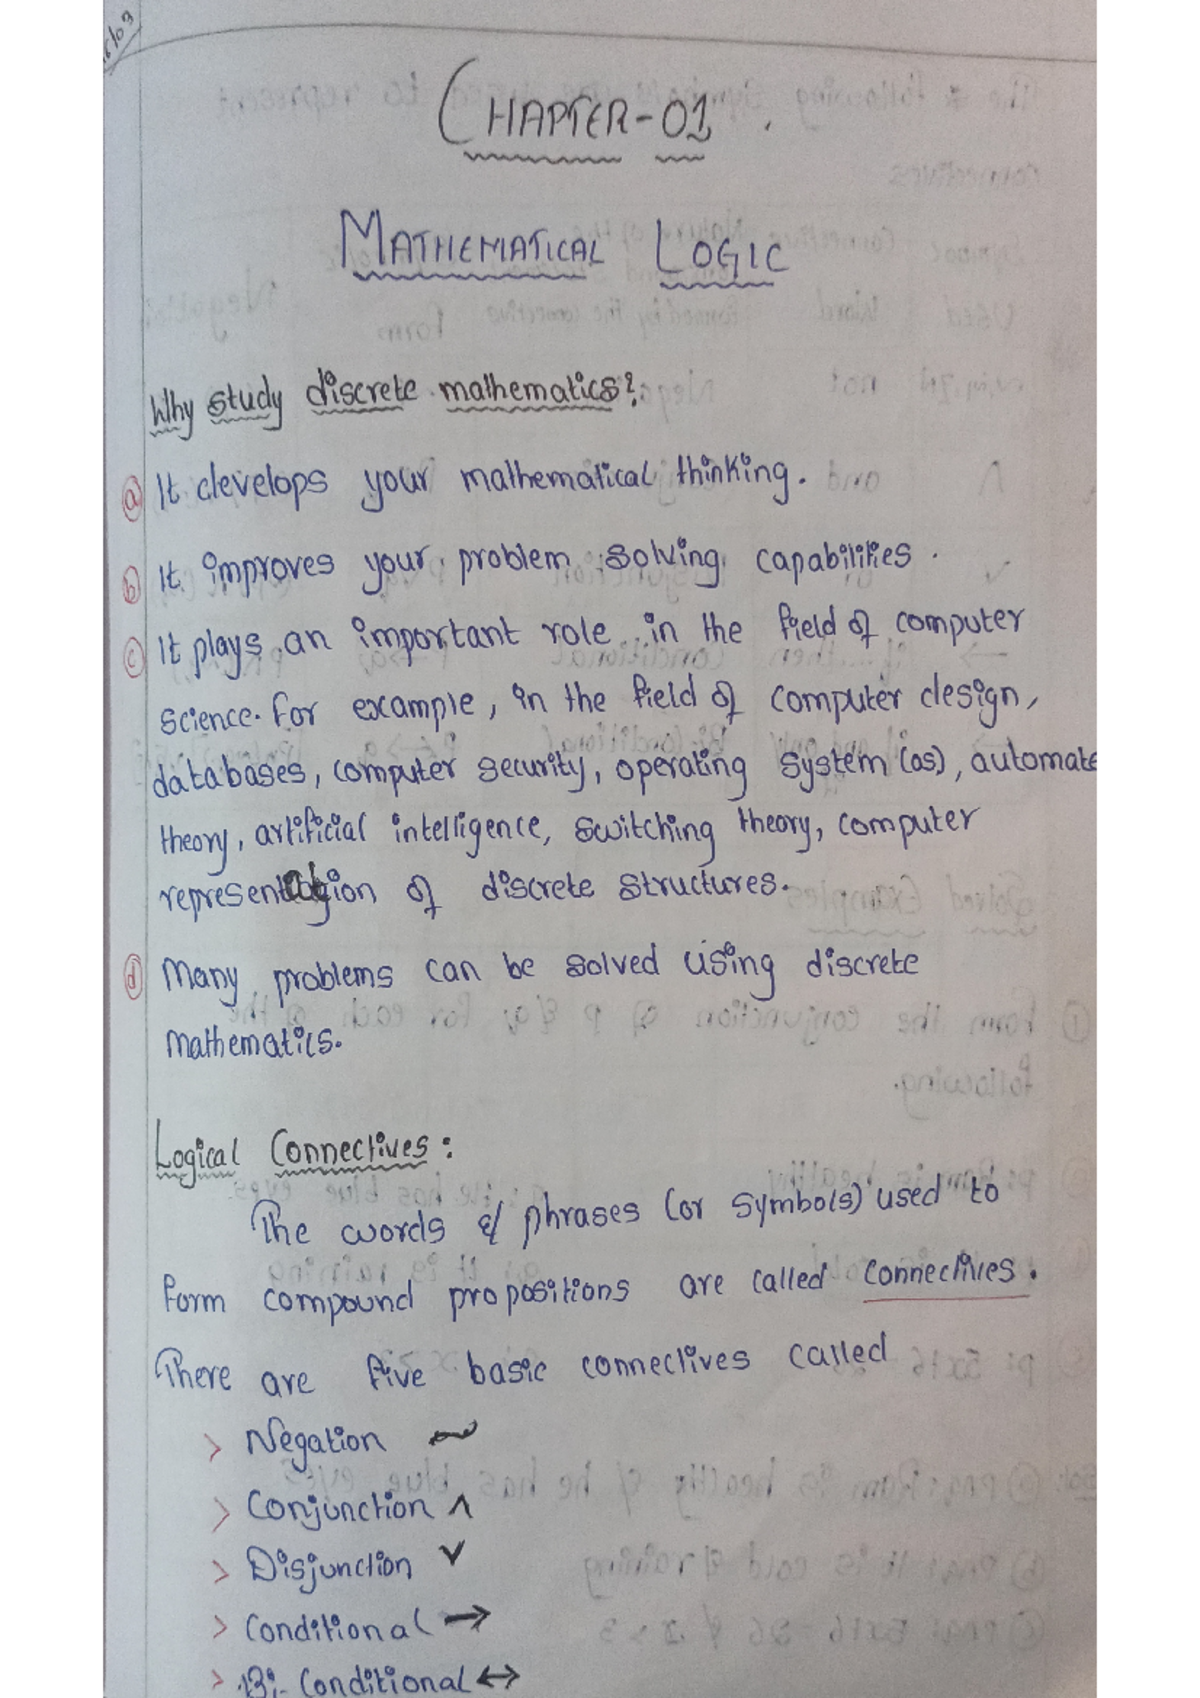 CHAPTER-01.
MATHEMATICAL LOGIC
Why study discrete mathematics?
a It develops your mathematical thinking.
b It improves your problem solving capabilities.
c It plays an important role in the field of computer
science. For example, in the field of computer design,
databases, computer security, operating system (os), automate
theory, artificial intelligence, switching theory, computer
representation of discrete structures.
d Many problems can be solved using discrete
mathematics.
Logical Connectives:
The words & phrases (or symbols) used to
form compound propositions are called connectives.
There are five basic connectives called
> Negation ~
> Conjunction ∧
> Disjunction ∨
> Conditional →
> Bi- Conditional ↔